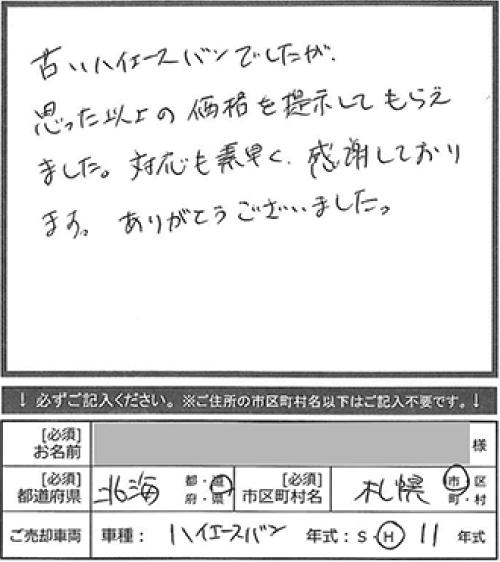 古いハイエースバンでしたが、
思った以上の価格を提示してもらえ
ました。対応も素早く、感謝しており
ます。ありがとうございました。
↓必ずご記入ください。※ご住所の市区町村名以下はご記入不要です。↓
[必須] お名前 様
[必須] 都道府県 北海 都・道 府・県 [必須] 市区町村名 札幌 市・区 町・村
ご売却車両 車種： ハイエースバン 年式：S・H 11 年式